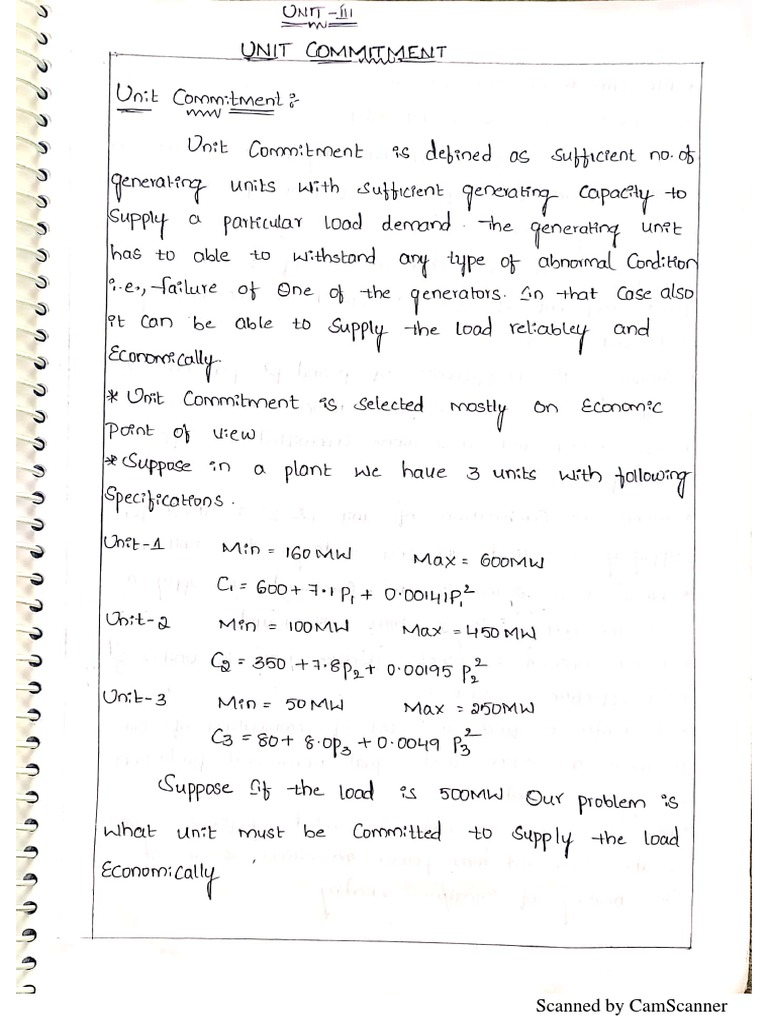 UNIT-III
UNIT COMMITMENT
Unit Commitment :-
Unit Commitment is defined as sufficient no. of
generating units with sufficient generating capacity to
supply a particular load demand. The generating unit
has to able to withstand any type of abnormal Condition
i.e., failure of one of the generators. In that case also
it can be able to supply the load reliabley and
Economically.
* Unit Commitment is selected mostly on Economic
Point of view
* Suppose in a plant we have 3 units with following
Specifications.
Unit-1 Min = 160 MW Max = 600MW
C₁ = 600 + 7.1 P₁ + 0.00141P₁²
Unit-2 Min = 100MW Max = 450 MW
C₂ = 350 + 7.8P₂ + 0.00195 P₂²
Unit-3 Min = 50 MW Max = 250MW
C₃ = 80 + 8.0P₃ + 0.0049 P₃²
Suppose If the load is 500MW Our problem is
what unit must be Committed to supply the load
Economically
Scanned by CamScanner